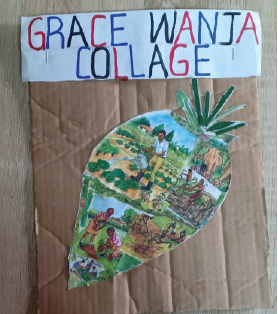 GRACE WANJA
COLLAGE